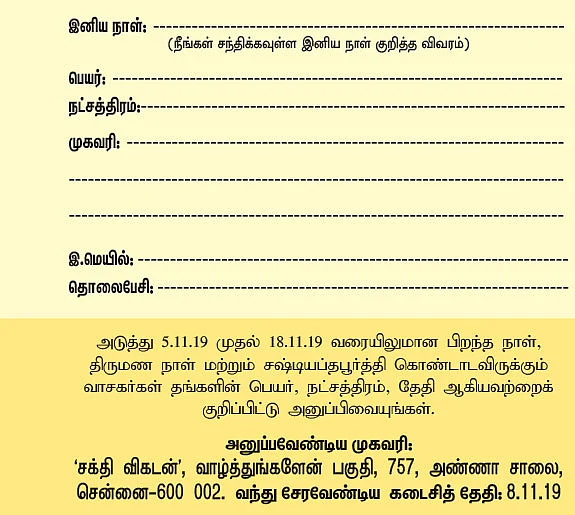 இனிய நாள்: ------------------------------------------------------------
(நீங்கள் சந்திக்கவுள்ள இனிய நாள் குறித்த விவரம்)
பெயர்: ------------------------------------------------------------
நட்சத்திரம்:------------------------------------------------------------
முகவரி: ------------------------------------------------------------
------------------------------------------------------------
------------------------------------------------------------
இ.மெயில்: ------------------------------------------------------------
தொலைபேசி: ------------------------------------------------------------
அடுத்து 5.11.19 முதல் 18.11.19 வரையிலுமான பிறந்த நாள்,
திருமண நாள் மற்றும் சஷ்டியப்தபூர்த்தி கொண்டாடவிருக்கும்
வாசகர்கள் தங்களின் பெயர், நட்சத்திரம், தேதி ஆகியவற்றைக்
குறிப்பிட்டு அனுப்பிவையுங்கள்.
அனுப்பவேண்டிய முகவரி:
‘சக்தி விகடன்’, வாழ்த்துங்களேன் பகுதி, 757, அண்ணா சாலை,
சென்னை-600 002. வந்து சேரவேண்டிய கடைசித் தேதி: 8.11.19